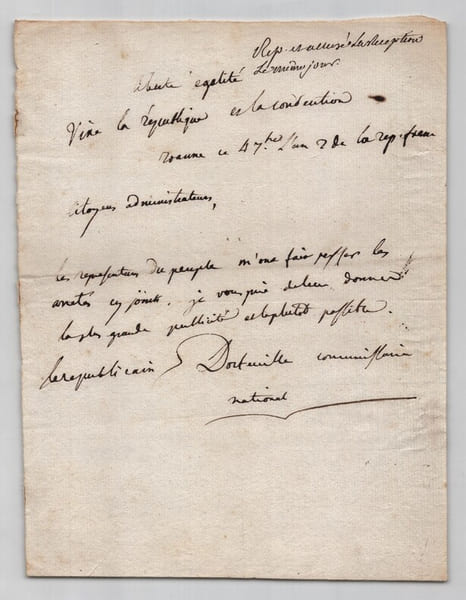 Rep. et accusé la Reception
Le même jour.
liberté egalité
Vive la république et la convention
roanne ce 4 7bre L'an 2 de la rep. franc
Citoyens administrateurs,
les representens du peuple m'one fair passer les
arretés cy joints. je vous prie de leur donner
la plus grande publicité et le plutot possible.
le republicain Dorteuille commissaire
national